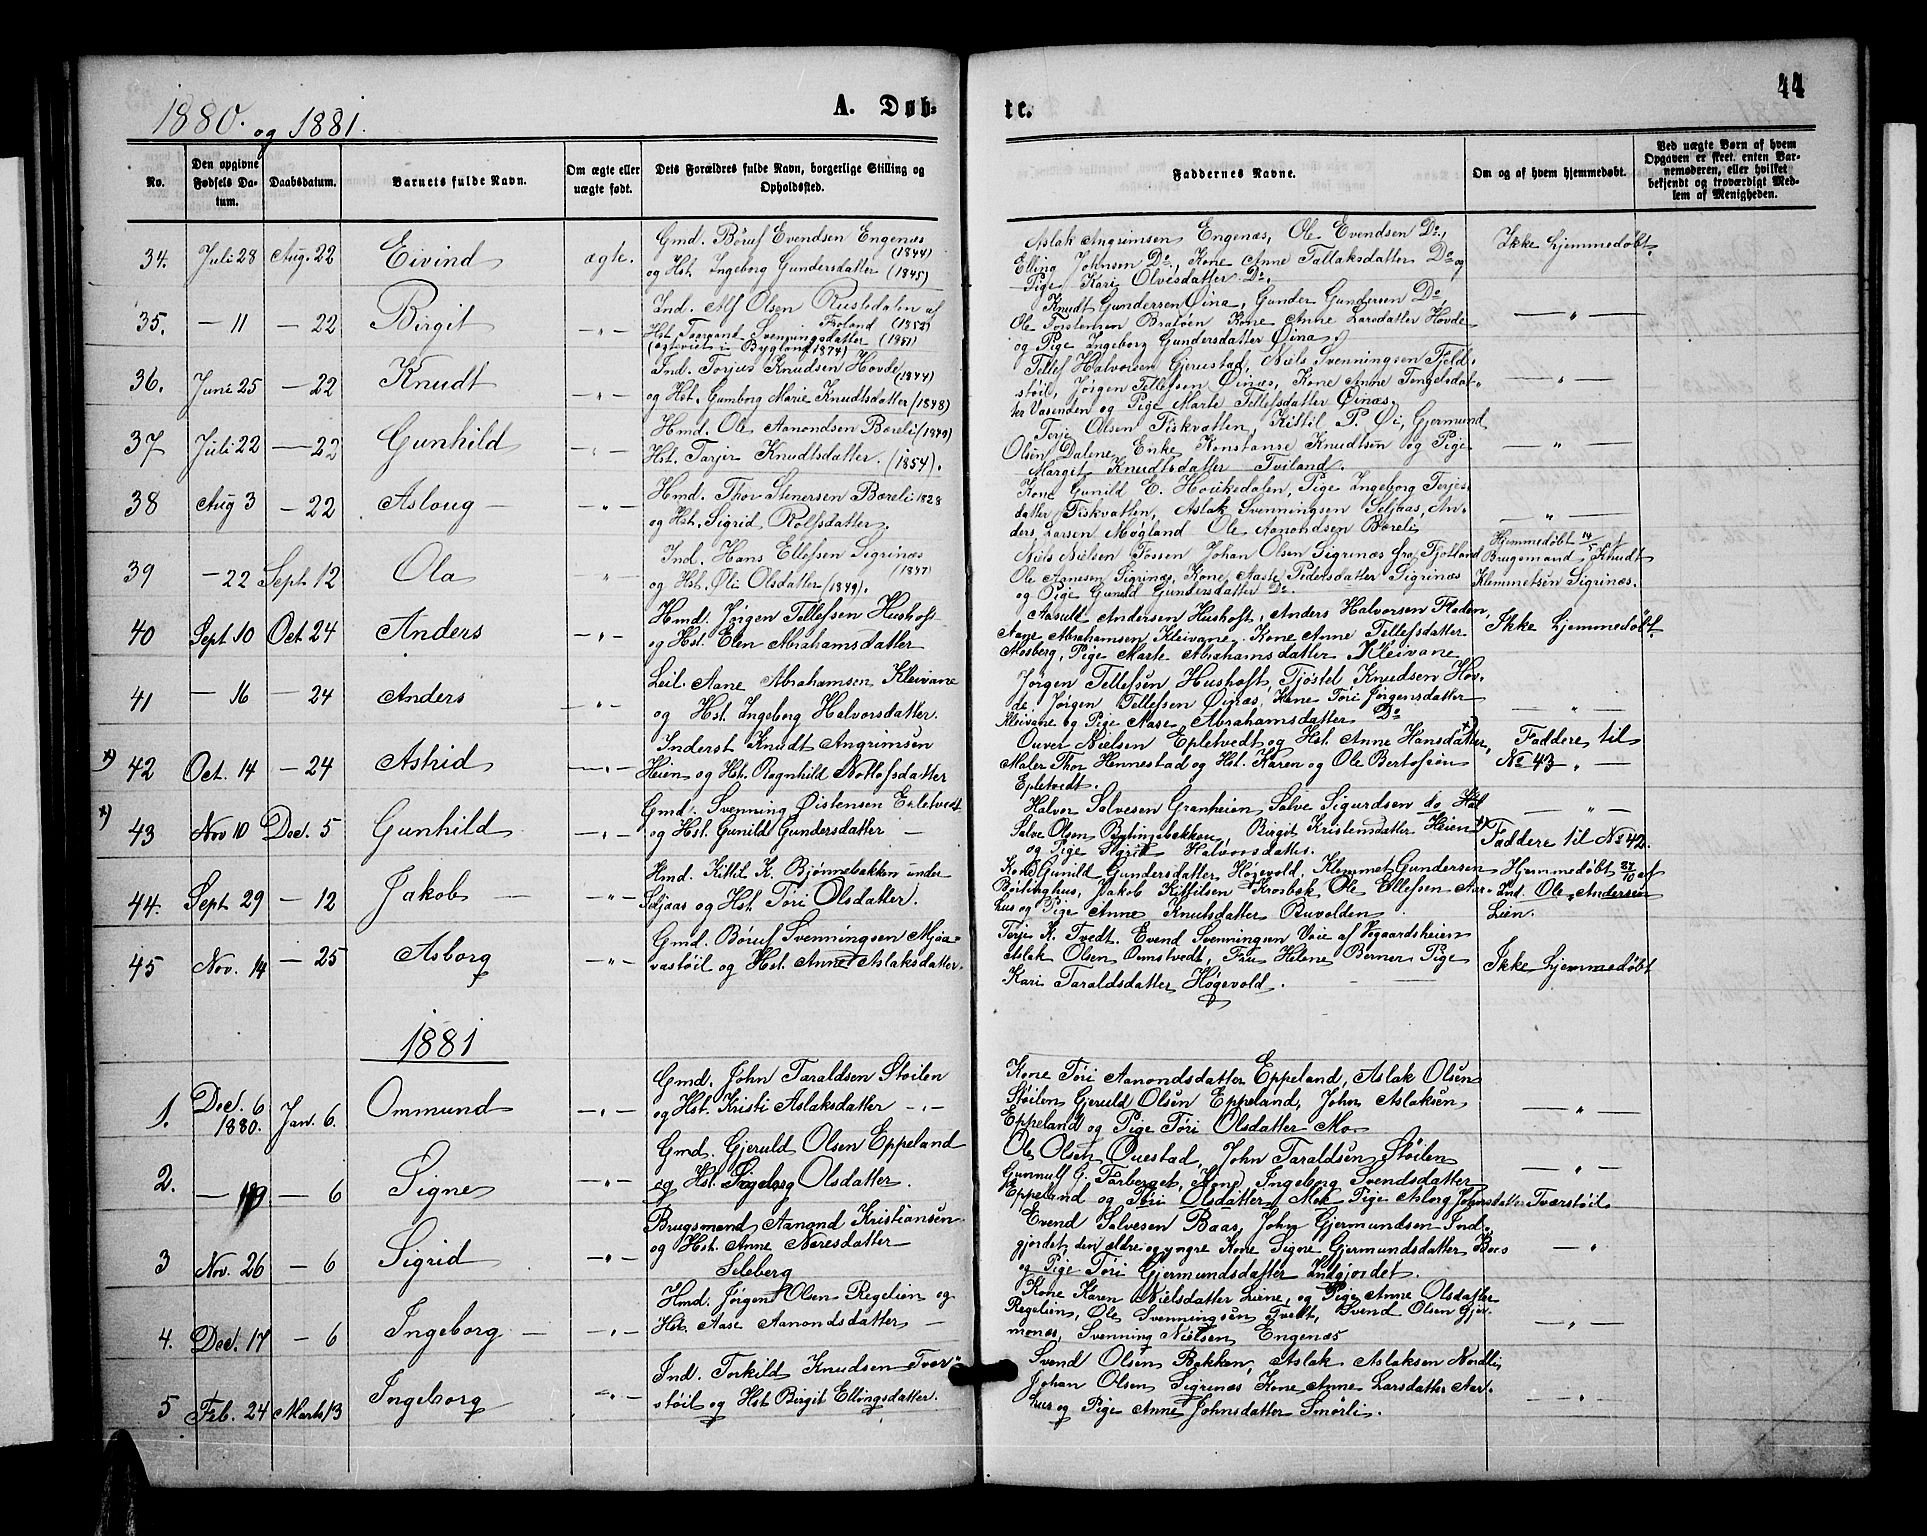 1880. og 1881.
A. Døb-
te.
44
No.
Den opgivne Fødsels Datum.
Daabsdatum.
Barnets fulde Navn.
Om ægte eller uægte født.
Dets Forældres fulde Navn, borgerlige Stilling og Opholdssted.
Faddernes Navne.
Om og af hvem hjemmedøbt.
Ved uægte Børn af hvem Opgaven er skeet, enten Barnemoderen, eller hvilket bekjendt og troværdigt Medlem af Menigheden.
34. Juli 28 Aug. 22 Eivind ægte.
Gmd. Böruf Evendsen Engenæs (1844)
og Hst. Ingeborg Gundersdatter (1845)
Aslak Angrimsen Engenæs, Ole Evendsen Do,
Elling Johnsen Do, Kone Anne Tallaksdatter Do og
Pige Kari Olvisdatter Do.
Ikke hjemmedøbt
35. — 11 — 22 Birgit — " —
Ind. Alf Olsen Rustedalen af
Froland (1852)
Hst. Torand Svenungsdatter (1851)
(ægteviet i Bygland 1874)
Knudt Gundersen Øina, Gunder Gundersen Do,
Ole Torstensen Bratöen Kone Anne Larsdatter Hovde
og Pige Ingeborg Gundersdatter Øina.
— " —
36. Juni 25 — 22 Knudt — " —
Ind. Torjus Knudsen Hovde (1844)
og Hst. Gumborg Marie Knudtsdatter (1848)
Tellef Halvorsen Gjerustad, Niels Svenningsen Fjeld-
støil, Jørgen Tellefsen Øinæs, Kone Anne Tengelsdat-
ter Vasenden og Pige Marte Tellefsdatter Øinæs.
— " —
37 Juli 22 — 22 Gunhild — " —
Hmd. Ole Aanondsen Boreli (1849)
Hst. Tarjer Knudtsdatter. (1854).
Terje Olsen Fiskvatten, Kittil P. Øi, Gjermund
Olsen Dalene, Enke Konstanse Knudtsen og Pige
Margit Knudtsdatter Tviland.
— " —
38 Aug 3 — 22 Aslaug — — " —
Hmd. Thor Stenersen Bæreli 1828
og Hst. Sigrid Rolfsdatter.
Kone Gunild E. Houkedalen, Pige Ingeborg Terjes-
datter Fiskvatten, Aslak Svenningsen Seljaas, An-
ders Larsen Mogland Ole Aanondsen Bæreli
— " —
39 — 22 Sept. 12 Ola "
Ind. Hans Ellefsen Sigrinæs (1847)
og Hst. Øli Olsdatter (1849).
Niels Nielsen Fossen Johan Olsen Sigrinæs fra Fjotland
Ole Aanesen Sigrinæs, Kone Aaste Pedersdatter Sigrinæs
og Pige Gunild Gundersdatter Do.
Hjemmedøbt af
Brugsmand Knudt
Klemmetsen Sigrinæs.
40 Sept. 10 Oct. 24 Anders — " —
Hmd. Jørgen Tellefsen Hushoft
og Hst. Elen Abrahamsdatter
Aasult Andersen Hushoft, Anders Halvorsen Floden,
Aane Abrahamsen Kleivane, Kone Anne Tellefsdatter
Mosberg, Pige Marte Abrahamsdatter Kleivane
Ikke hjemmedøbt
41 — 16 — 24 Anders — " —
Leil. Aane Abrahamsen Kleivane
og Hst. Ingeborg Helvorsdatter.
Jørgen Tellefsen Hushoft, Tjøstel Knudsen Hov-
de, Jørgen Tellefsen Øinæs, Kone Tøri Jørgensdatter
Kleivane og Pige Aase Abrahamsdatter Do
— " —
x) 42 Oct. 14 — 24 Astrid — " —
Inderst Knudt Angrimsen
Heien og Hst. Ragnhild Nottofsdatter
Ouver Nielsen Epletvedt og Hst. Anne Hansdatter,
Maler Thor Hennestad og Hst. Karen og Ole Bertofsen
Epletvedt.
Faddere til
No 43 " —
x) 43 Nov 10 Dec. 5 Gunhild — " —
Gmd. Svenning Øistensen Epletvedt
og Hst. Gunild Gundersdatter —
Halvor Salvesen Granheien, Salve Sigurdsen do
Salve Olsen Bytingsbakken, Birgit Kristensdatter Heien
og Pige Sigrid Halvorsdatter.
— " —
Faddere til No 42.
44. Sept. 29 — 12 Jakob — — " —
Hmd. Kittil K. Bjønnebakken under
Seljaas og Hst. Tøri Olsdatter.
Kone Gunild Gundersdatter, Høgevold, Klemmet Gundersen
Bøilinghus, Jakob Kittilsen Krosbæk, Ole Ellefsen Aar-
hus og Pige Anne Knutsdatter Buvolden
Hjemmedøbt 27/10 af
Ind. Ole Andersen
Lien.
45 Nov. 14 — 25 Asborg — " —
Gmd. Böruf Svenningsen Mjøa-
vastøil og Hst. Anne Aslaksdatter.
Terje K. Tvedt, Evend Svenningsen Voie af Vegaardsheien
Aslak Olsen Omstvedt, Fru Helene Berner, Pige
Kari Taraldsdatter Høgevold.
Ikke hjemmedøbt
1881
1. Dec. 6 1880. Jan. 6. Ommund — " —
Gmd. John Taraldsen Støilen
og Hst. Kristi Aslaksdatter — " —
Kone Tøri Aanondsdatter Eppeland, Aslak Olsen
Støilen Gjeruld Olsen Eppeland, John Aslaksen
Eppeland og Pige Tøri Olsdatter Mo
— " —
2. — 19 — 6 Signe — " —
Gmd. Gjeruld Olsen Eppeland
og Hst. Ingeborg Olsdatter.
Ole Olsen Ouestad, John Taraldsen Støilen
Gunnulf G. Farberget, Kone Ingeborg Svendsdatter
Eppeland og Tøri Olsdatter Mo Pige Asborg Johnsdatter Tværstøil.
— " —
3 Nov. 26 — 6 Sigrid — " —
Brugsmand Aanond Kristiansen
og Hst. Anne Noresdatter
Seleberg
Evend Salvesen Baas, John Gjermundsen Ind-
gjordet, den ældre og yngre Kone Signe Gjermundsdatter Baas
og Pige Tøri Gjermundsdatter Indgjordet.
— "
4. Dec. 17 — 6 Ingeborg — — " —
Hmd. Jørgen Olsen Regelien og
Hst. Aase Aanondsdatter —
Kone Karen Nielsdatter Liene, og Pige Anne Olsdatter
Regelien, Ole Svenningsen Tvedt, Svend Olsen Gjer-
monæs, Svenning Nielsen Engenæs
— " —
5 Feb. 24 Marts 13 Ingeborg — " —
Ind. Torkild Knudsen Tvær-
støil og Hst Birgit Ellingsdatter.
Svend Olsen Bakken, Aslak Aslaksen Nordli
Johan Olsen Sigrenæs Kone Anne Larsdatter Aar-
hus og Pige Anne Johnsdatter Smørli.
— " —